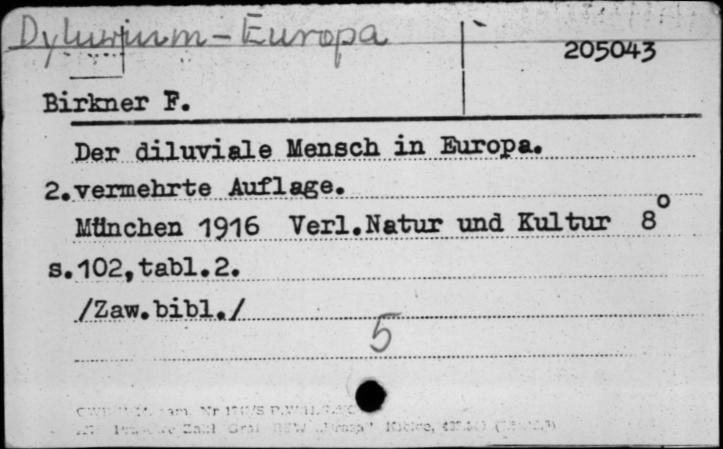 Dyluwium - Europa
205043
Birkner F.
Der diluviale Mensch in Europa.
2.vermehrte Auflage.
München 1916 Verl.Natur und Kultur 8°
s.102,tabl.2.
/Zaw.bibl./
5